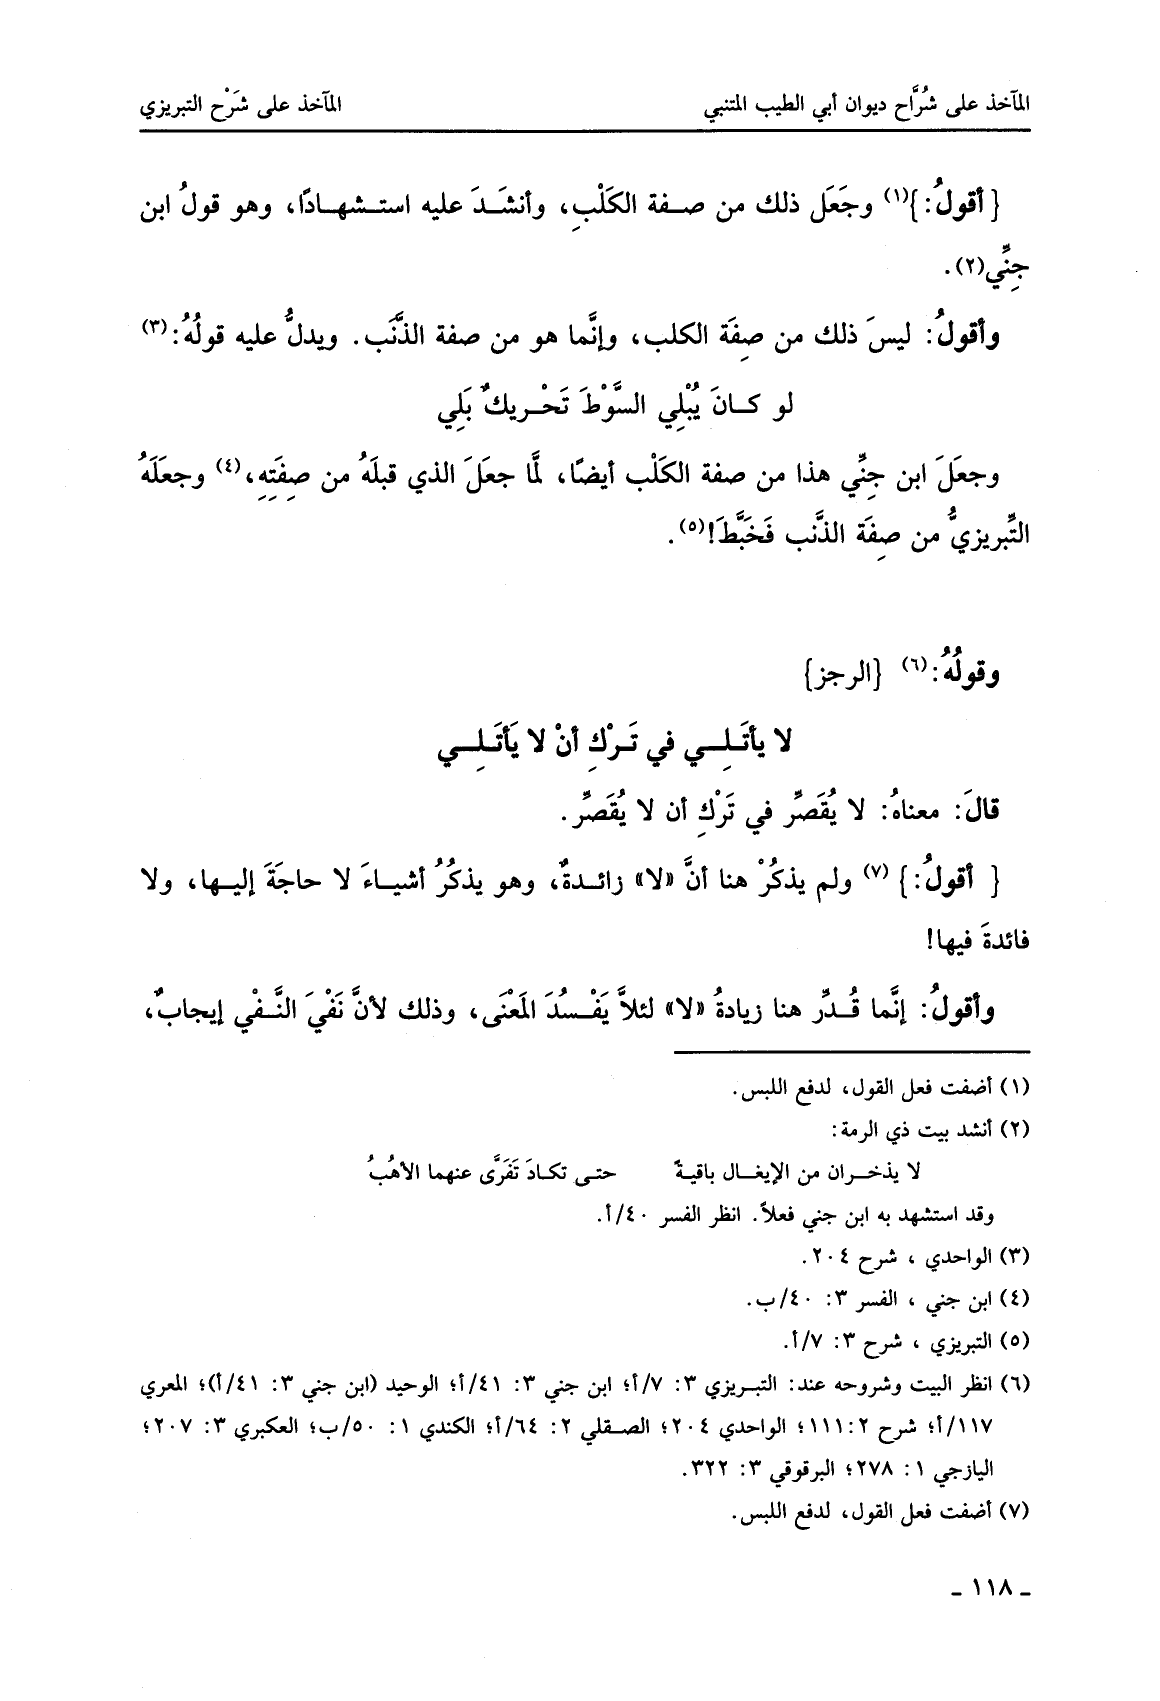 المآخذ على شُرَّاح ديوان أبي الطيب المتنبي المآخذ على شَرْح التبريزي
{أقولُ:}(١) وجَعَل ذلك من صفة الكَلْبِ، وأنشَدَ عليه استشهادًا، وهو قولُ ابن
جِنِّي(٢).
وأقولُ: ليسَ ذلك من صِفَة الكلب، وإنَّما هو من صفة الذَّنَب. ويدلُّ عليه قولُهُ:(٣)
لو كانَ يُبْلِي السَّوْطَ تَحْريكٌ بَلِي
وجعَلَ ابن جِنِّي هذا من صفة الكَلْب أيضًا، لمَّا جعَلَ الذي قبلَهُ من صِفَتِهِ،(٤) وجعلَهُ
التِّبريزيُّ من صِفَة الذَّنب فَخَبَّطَ!(٥).
وقولُهُ:(٦) {الرجز}
لا يأتَلِي في تَرْكِ أنْ لا يَأتَلِي
قالَ: معناهُ: لا يُقَصِّر في تَرْكِ أن لا يُقَصِّر.
{ أقولُ:} (٧) ولم يذكُرْ هنا أنَّ «لا» زائدةٌ، وهو يذكُرُ أشياءَ لا حاجَةَ إليها، ولا
فائدةَ فيها!
وأقولُ: إنَّما قُدِّر هنا زيادةُ «لا» لئلاَّ يَفْسُدَ المَعْنَى، وذلك لأنَّ نَفْيَ النَّفْي إيجابٌ،
(١) أضفت فعل القول، لدفع اللبس.
(٢) أنشد بيت ذي الرمة:
لا يذخران من الإيغال باقيةً حتى تكادَ تَفَرَّى عنهما الأهُبُ
وقد استشهد به ابن جني فعلاً. انظر الفسر ٤٠/أ.
(٣) الواحدي ، شرح ٢٠٤.
(٤) ابن جني ، الفسر ٣: ٤٠/ب.
(٥) التبريزي ، شرح ٣: ٧/أ.
(٦) انظر البيت وشروحه عند: التبريزي ٣: ٧/أ؛ ابن جني ٣: ٤١/أ؛ الوحيد (ابن جني ٣: ٤١/أ)؛ المعري
١١٧/أ؛ شرح ٢: ١١١؛ الواحدي ٢٠٤؛ الصقلي ٢: ٦٤/أ؛ الكندي ١: ٥٠/ب؛ العكبري ٣: ٢٠٧؛
اليازجي ١: ٢٧٨؛ البرقوقي ٣: ٣٢٢.
(٧) أضفت فعل القول، لدفع اللبس.
ـ ١١٨ ـ